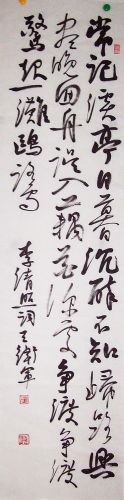 常记溪亭日暮沉醉不知归路興
尽晚回舟误入藕花深处争渡争渡
驚起一滩鷗鹭
李清照词王衛军